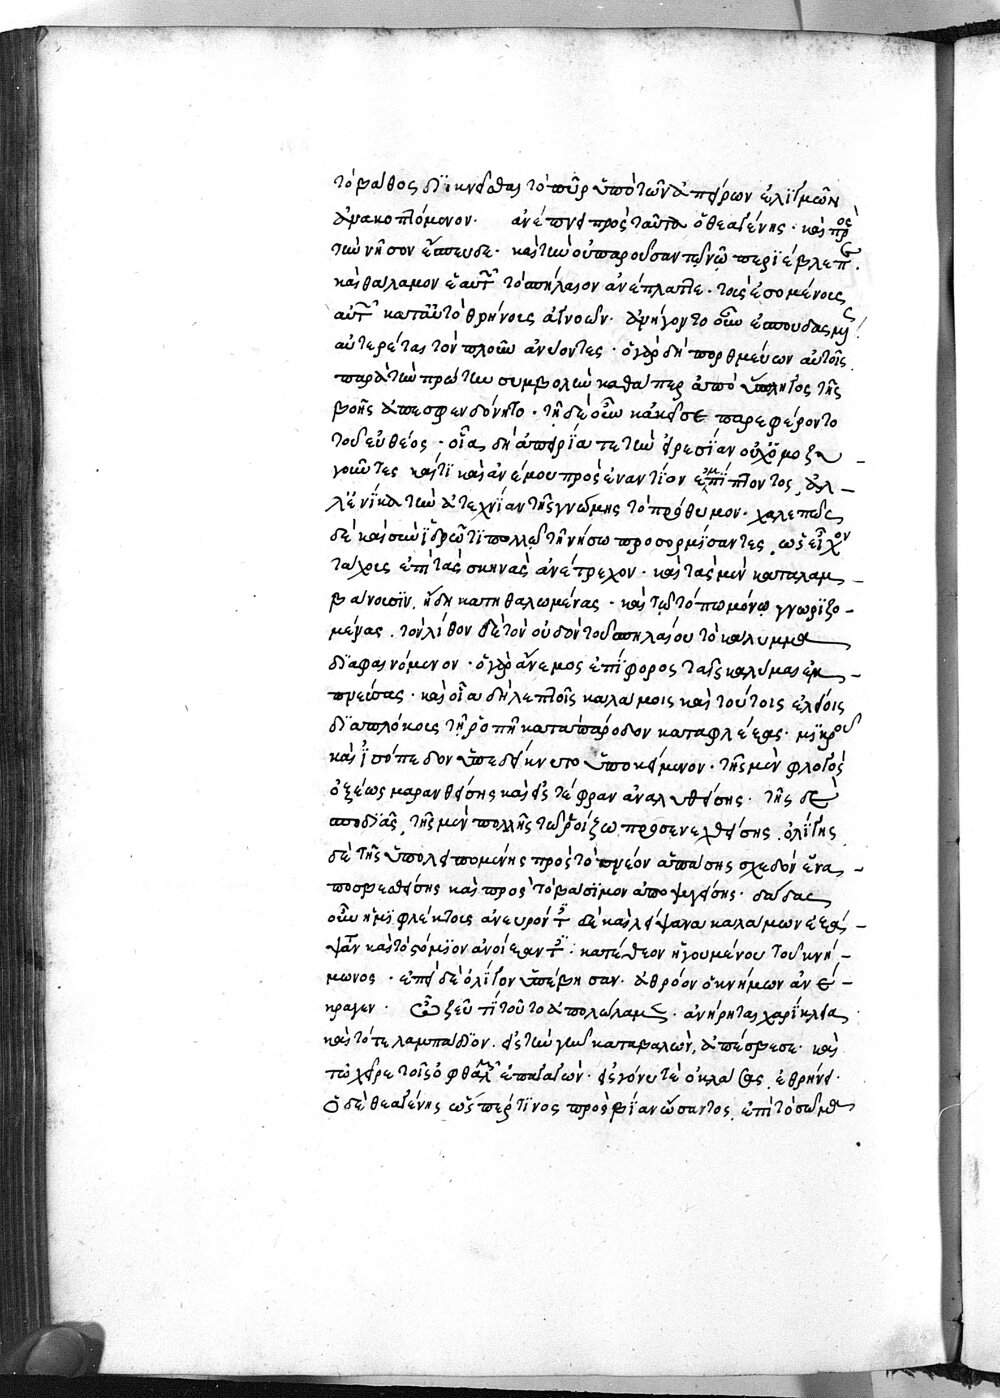 τὸ βάθος διϊκνεῖσθαι τὸ πῦρ ὑπὸ τῶν ἀπείρων ἑλιγμῶν
ἀνακοπτόμενον. ἀνέπνει πρὸς ταῦτα ὁ θεαγένης. καὶ πρὸς
τὴν νῆσον ἔσπευδε. καὶ τὴν οὐ παροῦσαν τῷ νῷ περιέβλεπε.
καὶ θάλαμον ἑαυτοῖς τὸ σπήλαιον ἀνέπλαττε. τοὺς ἐσομένους
αὐτοῖς κατ' αὐτὸ θρήνους ἀγνοῶν. ἀνήγοντο οὖν ἐσπουδασμένως
αὐτερέται τὸν πλοῦν ἀνύοντες. ὁ γὰρ δὴ πορθμεύων αὐτοῖς
παρὰ τὴν πρώτην συμβολὴν καθάπερ ἀπὸ ὕσπληγος τῆς
βοῆς ἀπεσφενδόνητο. τῇδε οὖν κἀκεῖσε παρεφέροντο
τοῦ εὐθέος. οἷα δὴ ἀπειρία τε τὴν εἰρεσίαν οὐχ ὁμοζυ-
γοῦντες καί τι καὶ ἀνέμου πρὸς ἐναντίον ἐμπίπτοντος, ἀλ-
λ' ἐνίκα τὴν ἀτεχνίαν τῆς γνώμης τὸ πρόθυμον. χαλεπῶς
δὲ καὶ σὺν ἱδρῶτι πολλῷ τῇ νήσω προσορμίσαντες, ὡς εἶχον
τάχους ἐπὶ τὰς σκηνὰς ἀνέτρεχον. καὶ τὰς μὲν καταλαμ-
βάνουσιν ἤδη κατηθαλωμένας. καὶ τῷ τόπω μόνω γνωριζο-
μένας. τὸν λίθον δὲ τὸν οὐδὸν τοῦ σπηλαίου τὸ κάλυμμα
διαφαινόμενον. ὁ γὰρ ἄνεμος ἐπίφορος ταῖς καλύβαις ἐμ-
πνεύσας. καὶ οἷα δὴ λεπτοῖς καλάμοις καὶ τούτοις ἑλείοις
διαπλόκοις τῇ ῥοπῇ κατὰ πάροδον καταφλέξας. μικροῦ
καὶ ἰσόπεδον ὑπεδείκνυτο ὑποκείμενον. τῆς μὲν φλογὸς
ὀξέως μαρανθείσης καὶ εἰς τέφραν ἀναλυθείσης. τῆς δὲ
σποδιᾶς, τῆς μὲν πολλῆς τῷ ῥοίζω προσενεχθείσης. ὀλίγης
δὲ τῆς ὑπολειπομένης πρὸς τὸ πνέον ἁπάσης σχεδὸν ἐνα-
ποσβεσθείσης καὶ πρὸς τὸ βάσιμον ἀποψυγείσης. δαῖδας
οὖν ἡμιφλέκτους ἀνευρόντες δὲ καὶ λείψανα καλάμων ἐξά-
ψαντες καὶ τὸ στόμιον ἀνοίξαντες. κατέθεον ἡγουμένου τοῦ κνή-
μωνος. ἐπεὶ δὲ ὀλίγον ὑπέβησαν. ἀθρόον ὁ κνήμων ἀνέ-
κραγεν. Ὦ ζεῦ τί τοῦτο ἀπολώλαμεν. ἀνήρηται χαρίκλεια.
καὶ τό τε λαμπάδιον εἰς τὴν γῆν καταβαλὼν, ἀπέσβεσε. καὶ
τὼ χεῖρε τοῖς ὀφθαλμοῖς ἐπαγαγὼν. εἰς γόνυ τὲ ὀκλάσας ἐθρήνει.
Ὁ δὲ θεαγένης ὥσπερ τινος πρὸς βίαν ὤσαντος, ἐπὶ τὸ σῶμα